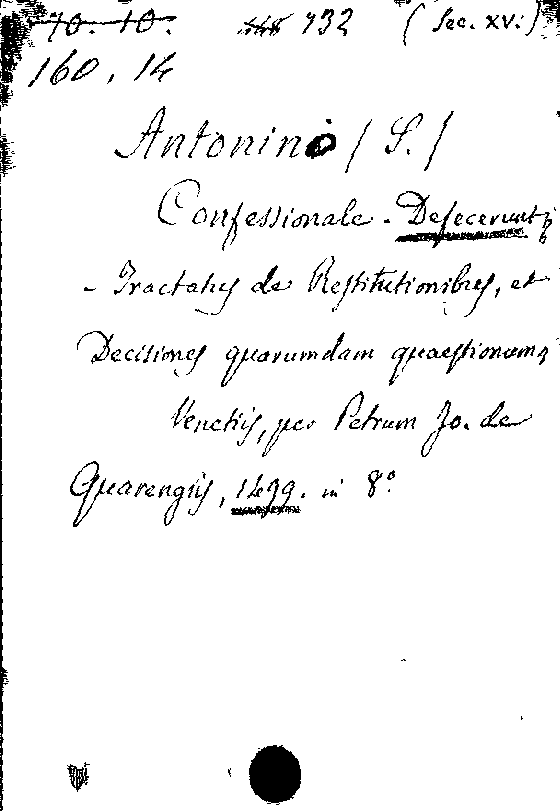 70. 10. 732 (Sec. XV.)
160, 14
Antonino (S.)
Confessionale - Defecerunt;
- Tractatus de Restitutionibus, et
Decisiones quarumdam quaestionum;
Venetiis, per Petrum Jo. de
Quarengiis, 1499. in 8º